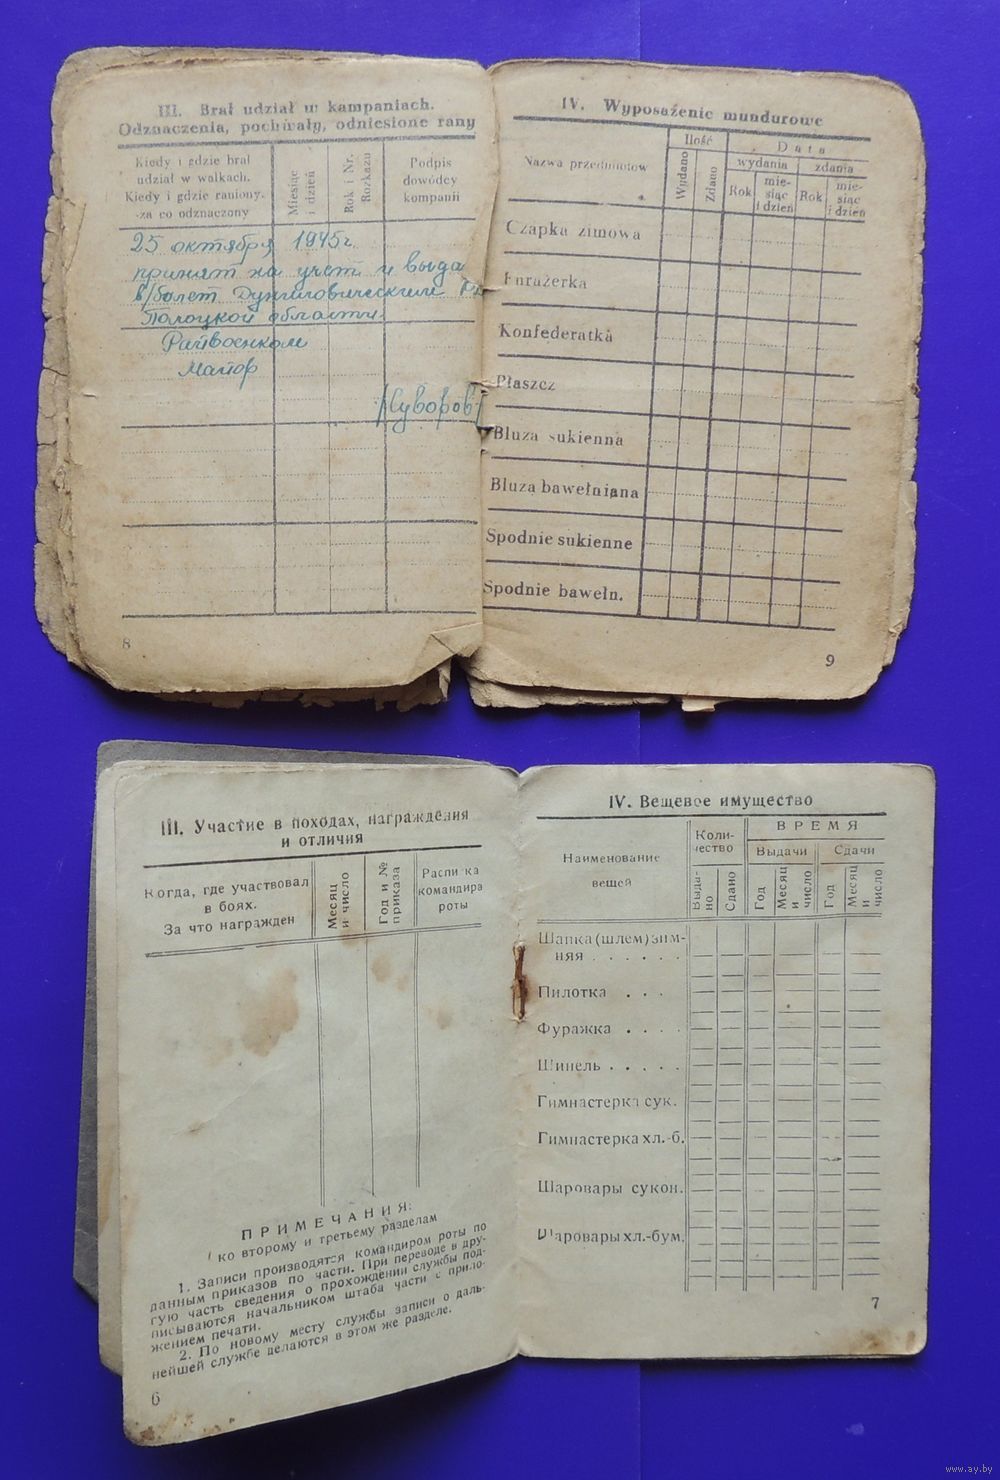 III. Brał udział w kampaniach.
Odznaczenia, pochwały, odniesione rany
Kiedy i gdzie brał
udział w walkach.
Kiedy i gdzie raniony.
za co odznaczony
Miesiąc
i dzień
Rok i Nr.
Rozkazu
Podpis
dowódcy
kompanii
25 октября 1945г.
принят на учет и выда
в/билет
Полоцкой области.
Райвоенком
Майор
/Суворов/
8
IV. Wyposażenie mundurowe
Nazwa przedmiotów
Ilość
Wydano
Zdano
Data
wydania
zdania
Rok
mie-
siąc
i dzień
Rok
mie-
siąc
i dzień
Czapka zimowa
Furażerka
Konfederatka
Płaszcz
Bluza sukienna
Bluza bawełniana
Spodnie sukienne
Spodnie bawełn.
9
III. Участие в походах, награждения
и отличия
Когда, где участвовал
в боях.
За что награжден
Месяц
и число
Год и №
приказа
Расписка
командира
роты
ПРИМЕЧАНИЯ:
ко второму и третьему разделам
1. Записи производятся командиром роты по
данным приказов по части. При переводе в дру-
гую часть сведения о прохождении службы под-
писываются начальником штаба части с прило-
жением печати.
2. По новому месту службы записи о даль-
нейшей службе делаются в этом же разделе.
6
IV. Вещевое имущество
Наименование
вещей
Коли-
чество
Выда-
но
Сдано
ВРЕМЯ
Выдачи
Сдачи
Год
Месяц
и
число
Год
Месяц
и
число
Шапка (шлем) зим-
няя . . . . . .
Пилотка . . .
Фуражка . . . .
Шинель . . . . .
Гимнастерка сук.
Гимнастерка хл.-б.
Шаровары сукон.
Шаровары хл.-бум.
7
www.ay.by